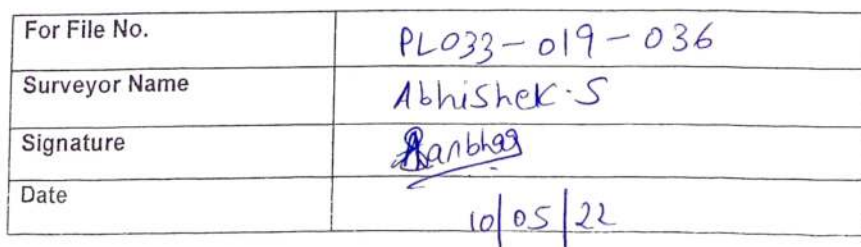 For File No. PL033-019-036
Surveyor Name Abhishek.S
Signature
Date 10/05/22